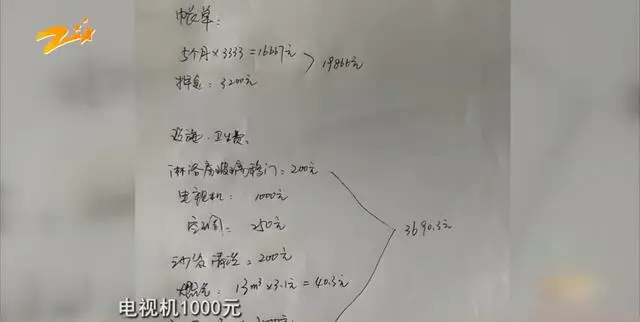 账单:
5个月×3333=16667元
19866元
押息: 3200元
设施、卫生费。
淋浴房玻璃移门: 200元
电视机: 1000元
空调: 250元
3690.3元
沙发清洗: 200元
燃气: 13m³×3.1元=40.3元
电视机1000元